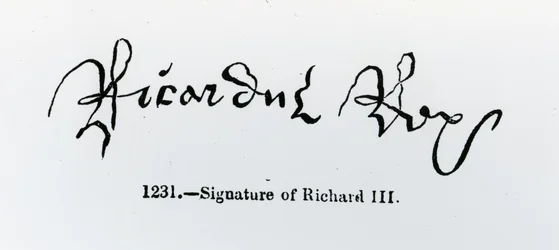 Ricardus Rex
1231.—Signature of Richard III.